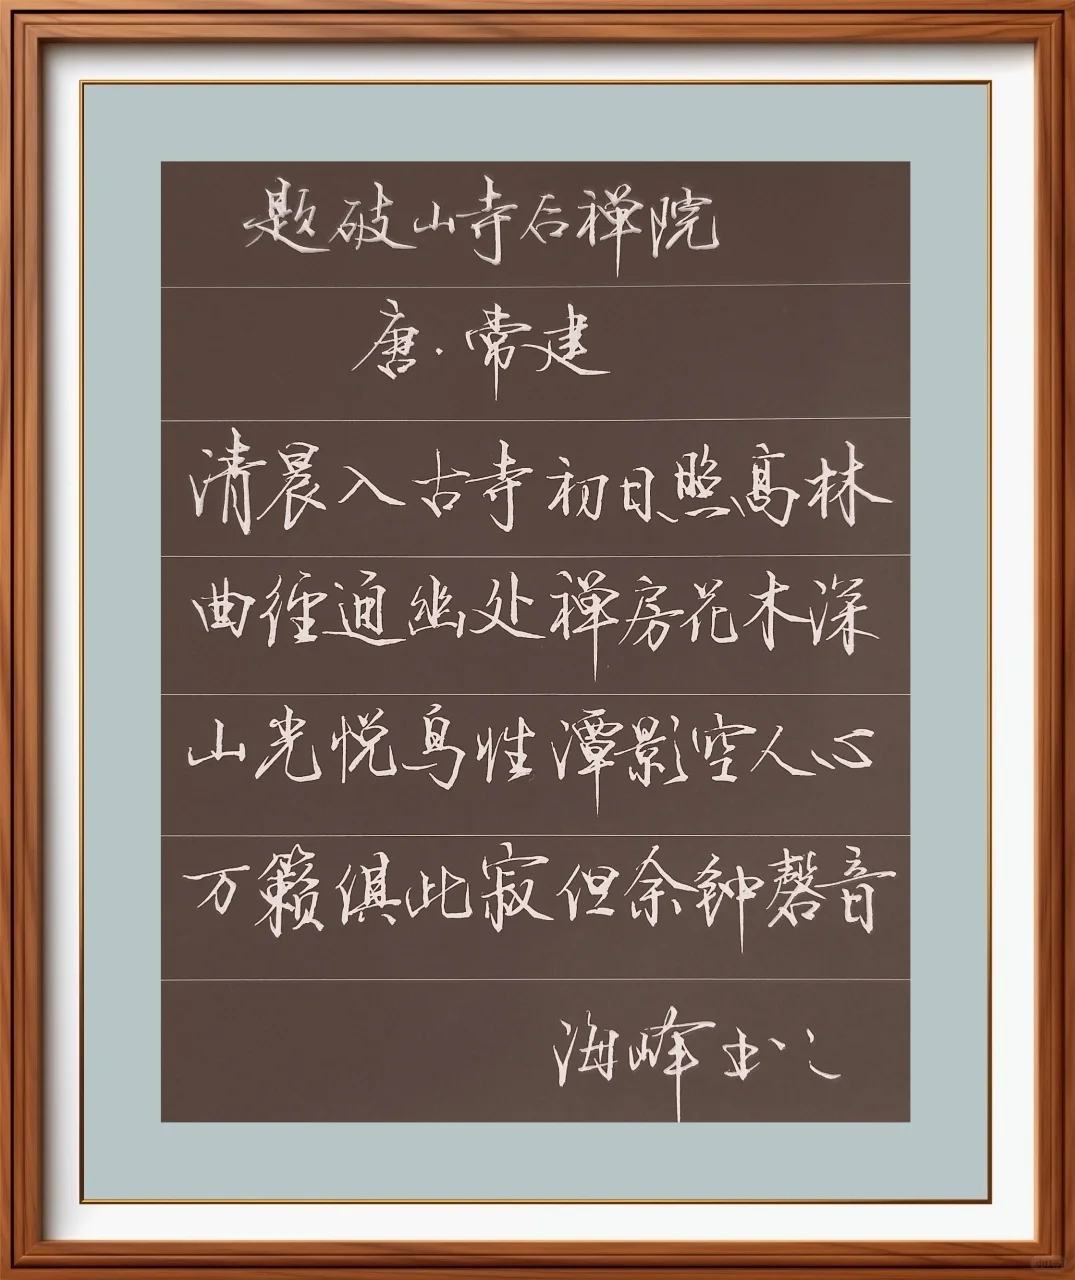 题破山寺后禅院
唐·常建
清晨入古寺初日照高林
曲径通幽处禅房花木深
山光悦鸟性潭影空人心
万籁俱此寂但余钟磬音
海峰书